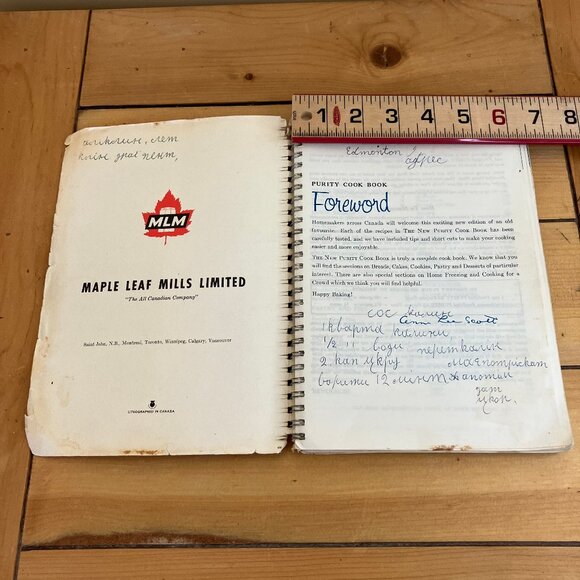 MLM
MAPLE LEAF MILLS LIMITED
"The All Canadian Company"
Saint John, N.B., Montreal, Toronto, Winnipeg, Calgary, Vancouver
LITHOGRAPHED IN CANADA
1 2 3 4 5 6 7 8
Edmonton
адрес
PURITY COOK BOOK
Foreword
Homemakers across Canada will welcome this exciting new edition of an old
favourite. Each of the recipes in THE NEW PURITY COOK BOOK has been
carefully tested, and we have included tips and short cuts to make your cooking
easier and more enjoyable.
THE NEW PURITY COOK BOOK is truly a complete cook book. We know that you
will find the sections on Breads, Cakes, Cookies, Pastry and Desserts of particular
interest. There are also special sections on Home Freezing and Cooking for a
Crowd which we think you will find helpful.
Happy Baking!
сос калини
Anna Lee Scott
1 кварта калини
1/2 " води
2 кап цукру
варити 12 минт